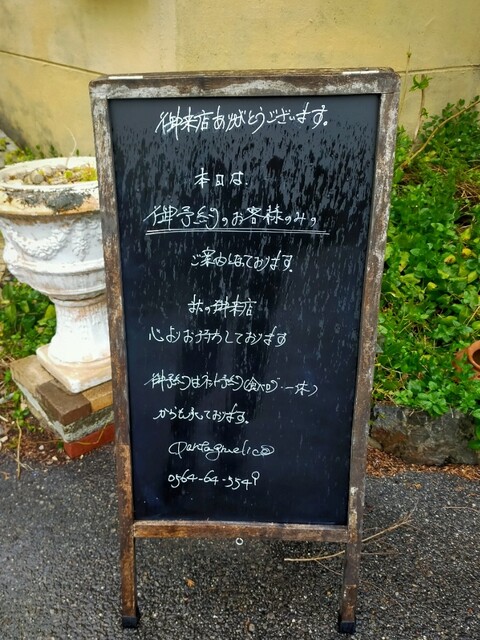 御来店ありがとうございます。
本日は、
御予約のお客様のみの
ご案内となっております。
またの御来店
心よりお待ちしております
御予約はネット予約(食べログ・一休)
からも承っております。
Pantagruelica
0564-64-